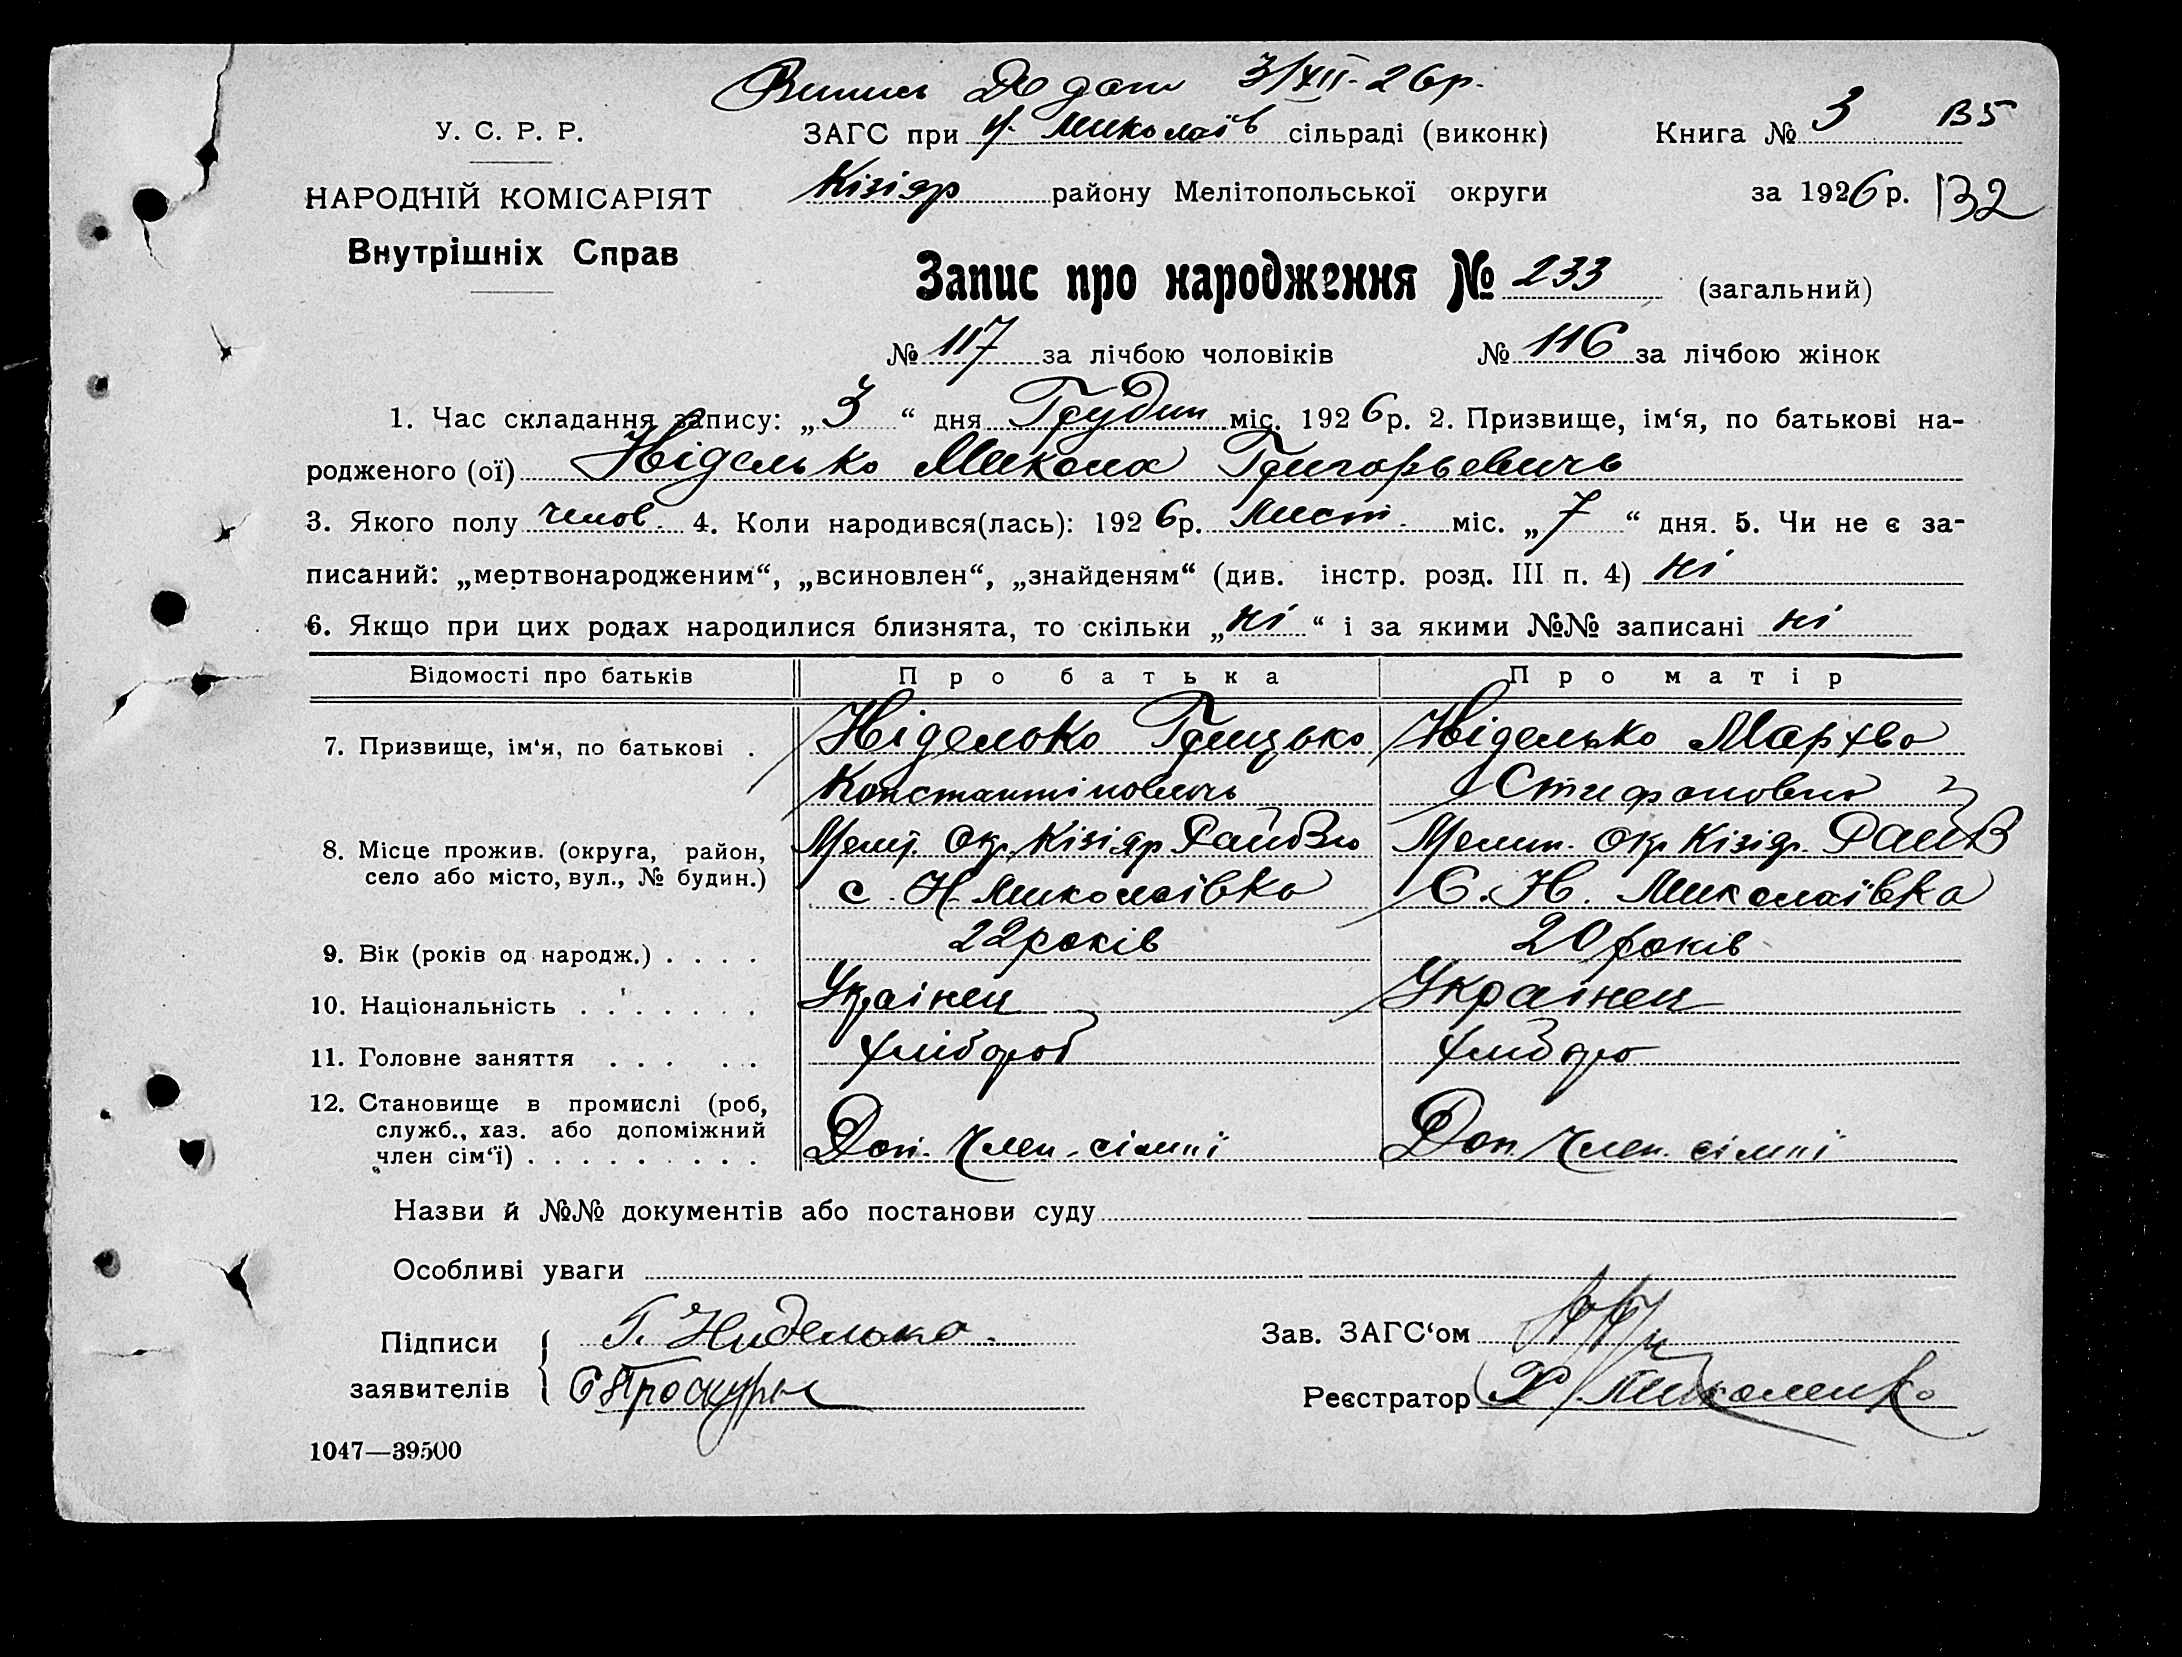 Випись Додат 3/XII-26р.
У. С. Р. Р.
ЗАГС при Н. Миколаїв сільраді (виконк)
Книга № 3 135
НАРОДНІЙ КОМІСАРІЯТ
Кізіяр району Мелітопольської округи
за 1926 р. 132
Внутрішніх Справ
Запис про народження № 233 (загальний)
№ 117 за лічбою чоловіків № 116 за лічбою жінок
1. Час складання запису: „3“ дня Грудни міс. 1926 р. 2. Призвище, ім‘я, по батькові на-
родженого (ої) Ніделько Микола Григорьевичь
3. Якого полу челов. 4. Коли народився(лась): 1926 р. Лист. міс. „7“ дня. 5. Чи не є за-
писаний: „мертвонародженим“, „всиновлен“, „знайденям“ (див. інстр. розд. III п. 4) ні
6. Якщо при цих родах народилися близнята, то скільки „ні“ і за якими №№ записані ні
Відомості про батьків Про батька Про матір
7. Призвище, ім‘я, по батькові . Ніделько Грицько Ніделько Мархва
Константіновичь Стифановна
8. Місце прожив. (округа, район, Меліт. Окр. Кізіяр Мелит. Окр. Кізіяр.
село або місто, вул., № будин.) с. Н. Миколаівка С. Н. Миколаівка
9. Вік (років од народж.) . . . . 22 років 20 років
10. Національність . . . . . . . Украінец Украінец
11. Головне заняття . . . . . . хлібороб
12. Становище в промислі (роб,
служб., хаз. або допоміжний
член сім‘ї) . . . . . . . . . Доп. Член. сімпі Доп. Член. сімпі
Назви й №№ документів або постанови суду
Особливі уваги
Підписи Г. Ниделько.
Зав. ЗАГС‘ом
заявителів Проскура
Реєстратор Х. Миколенко
1047—39500